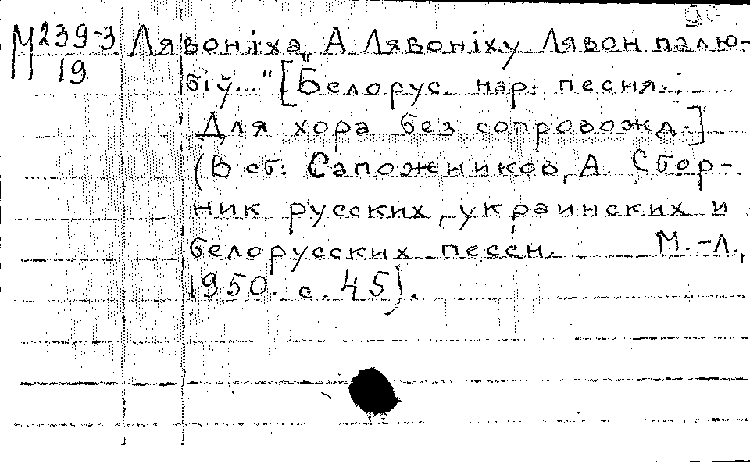 М239-3 Лявоніха „А Лявоніху Лявон палю-
19 біў..." [Белорус. нар. песня.
Для хора без сопровожд.]
(В сб: Сапожников, А. Сбор-
ник русских, украинских и
белорусских песен. М.-Л.,
1950. с. 45).